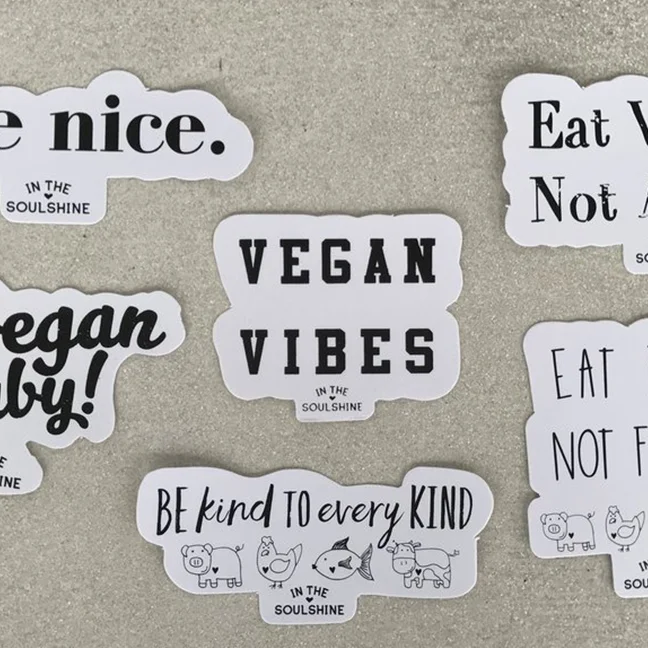 e nice.
IN THE
SOULSHINE
Eat V
Not
SO
VEGAN
VIBES
IN THE
SOULSHINE
egan
by!
E
INE
EAT
NOT F
IN
SOU
BE kind TO every KIND
IN THE
SOULSHINE